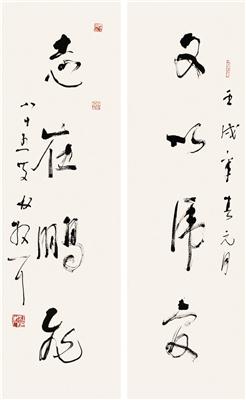 壬戌年春元月
文以虎變
志在鵬飛
八十五叟林散耳